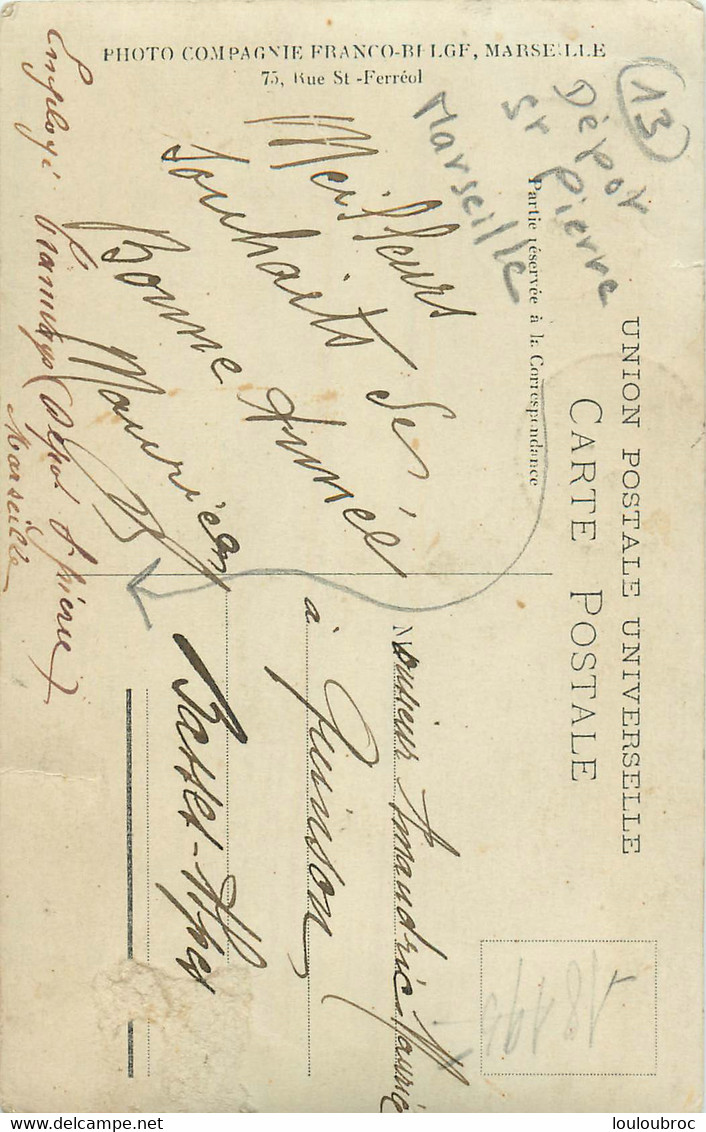 PHOTO COMPAGNIE FRANCO-BELGE, MARSEILLE
75, Rue St-Ferréol
13
Dépot
St Pierre
Marseille
UNION POSTALE UNIVERSELLE
CARTE POSTALE
Partie réservée à la Correspondance
Meilleurs
Souhaits de
Bonne Année
Maurice
Employé tramways Dépôt St Pierre
Marseille
Monsieur Amaudric Maurice
à Quinson
Basses-Alpes
louloubroc